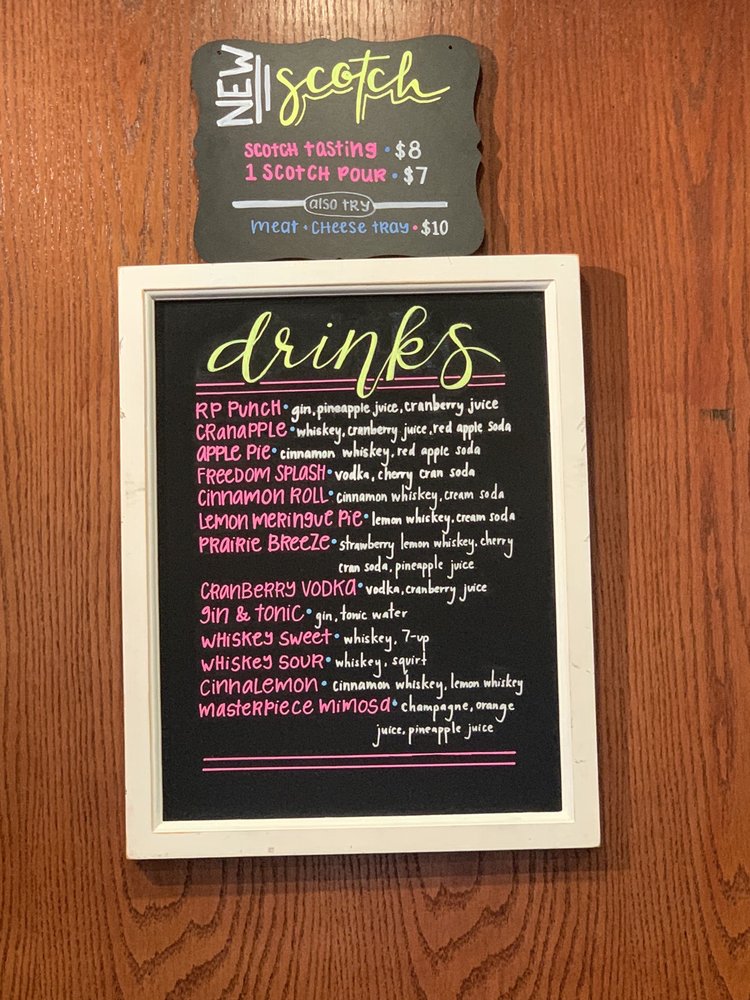 NEW scotch
SCOTCH TASTING • $8
1 SCOTCH POUR • $7
also try
meat + CHeese TRay • $10
drinks
RP PUNCH • gin, pineapple juice, cranberry juice
CRanapple • whiskey, cranberry juice, red apple soda
apple Pie • cinnamon whiskey, red apple soda
FReeDOM SPLASH • vodka, cherry cran soda
CINNamON ROLL • cinnamon whiskey, cream soda
Lemon meRINGUE Pie • lemon whiskey, cream soda
PRAIRIE BReeze • strawberry lemon whiskey, cherry
cran soda, pineapple juice
CRanBeRRY VODKa • vodka, cranberry juice
gin & tonic • gin, tonic water
WHISKey sweet • whiskey, 7-up
WHISKey SOUR • whiskey, squirt
CinnaLemon • cinnamon whiskey, lemon whiskey
masterpiece mimosa • champagne, orange
juice, pineapple juice